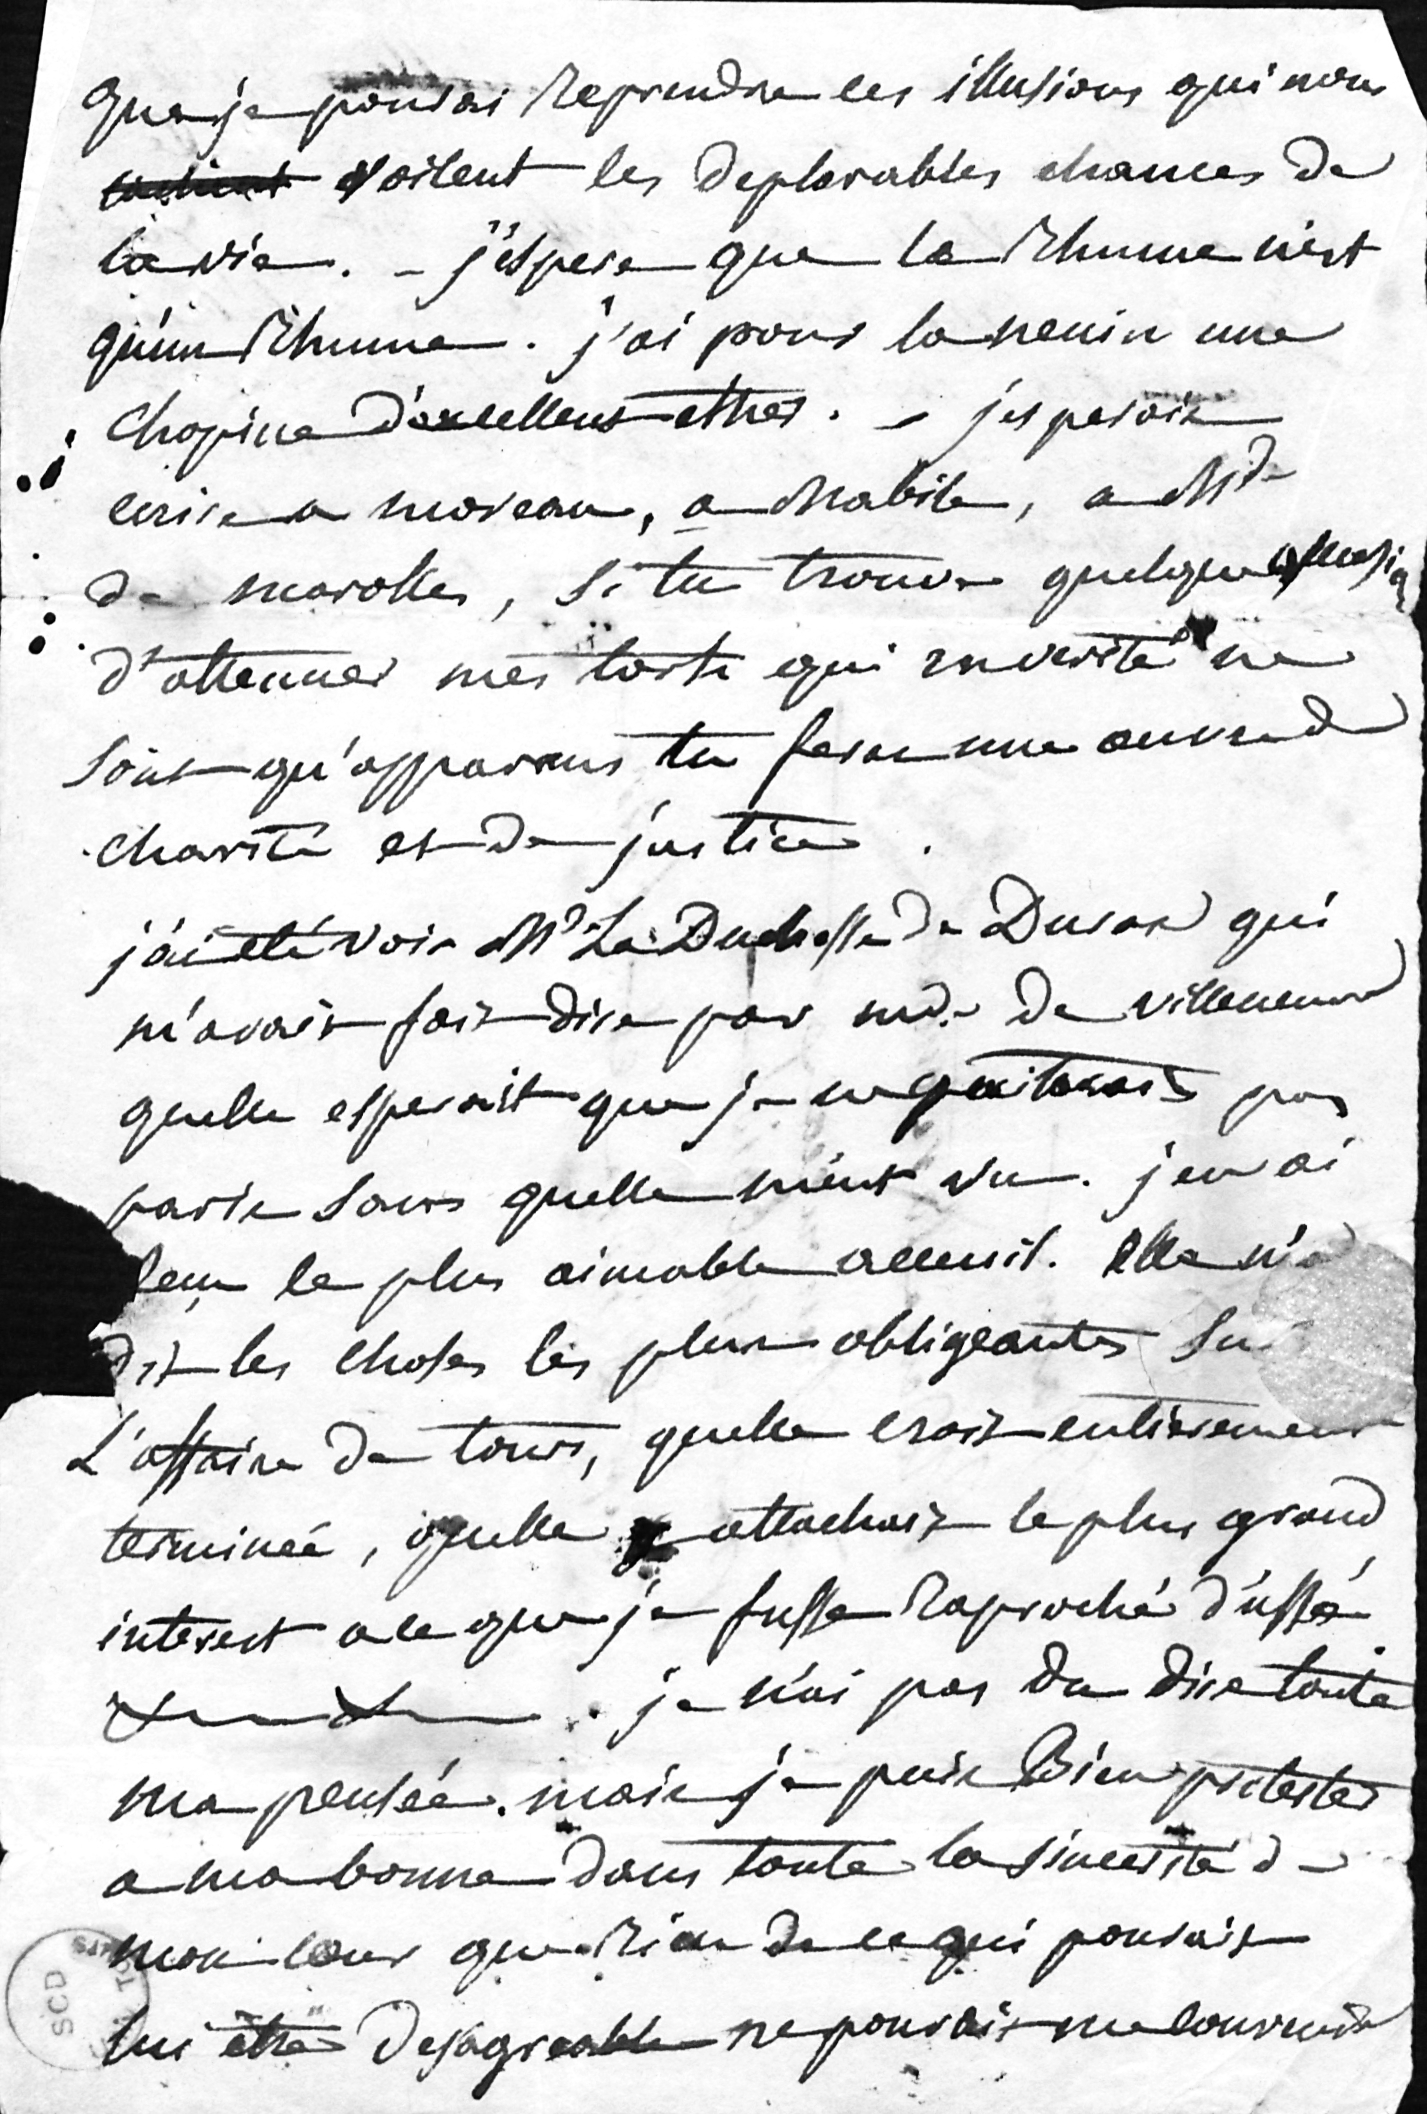 que je pourai reprendre les illusions qui nous
voilent les deplorables chances de
la vie. - j'espere que le Rhume n'est
qu'un Rhume. j'ai pour la nenin une
chopine d'excellent ether. - j'esperois
ecrire a moreau, a Mabile, a Md
de marolles, si tu trouve quelque
d'attenuer mes torts qui en verité ne
sont qu'apparens tu feras une œuvre de
charité et de justice.
j'ai été voir Md La Duchesse de Duras qui
m'avoit fait dire par md. de villeneuve
quelle esperoit que je ne quiterois pas
paris sans quelle m'eut vu. j'en ai
recu le plus aimable acceuil. Elle m'a
dit les choses les plus obligeantes sur
L'affaire de tours, quelle croit entierement
terminée, quelle attachoit le plus grand
interest a ce que je fusse raproché d'ussé
. je n'ai pas du dire toute
ma pensée. mais je puis Bien protester
a ma bonne dans toute la sincerité de
mon cœur que Rien de ce qui pouroit
lui être desagreable ne pouroit me convenir
SCD